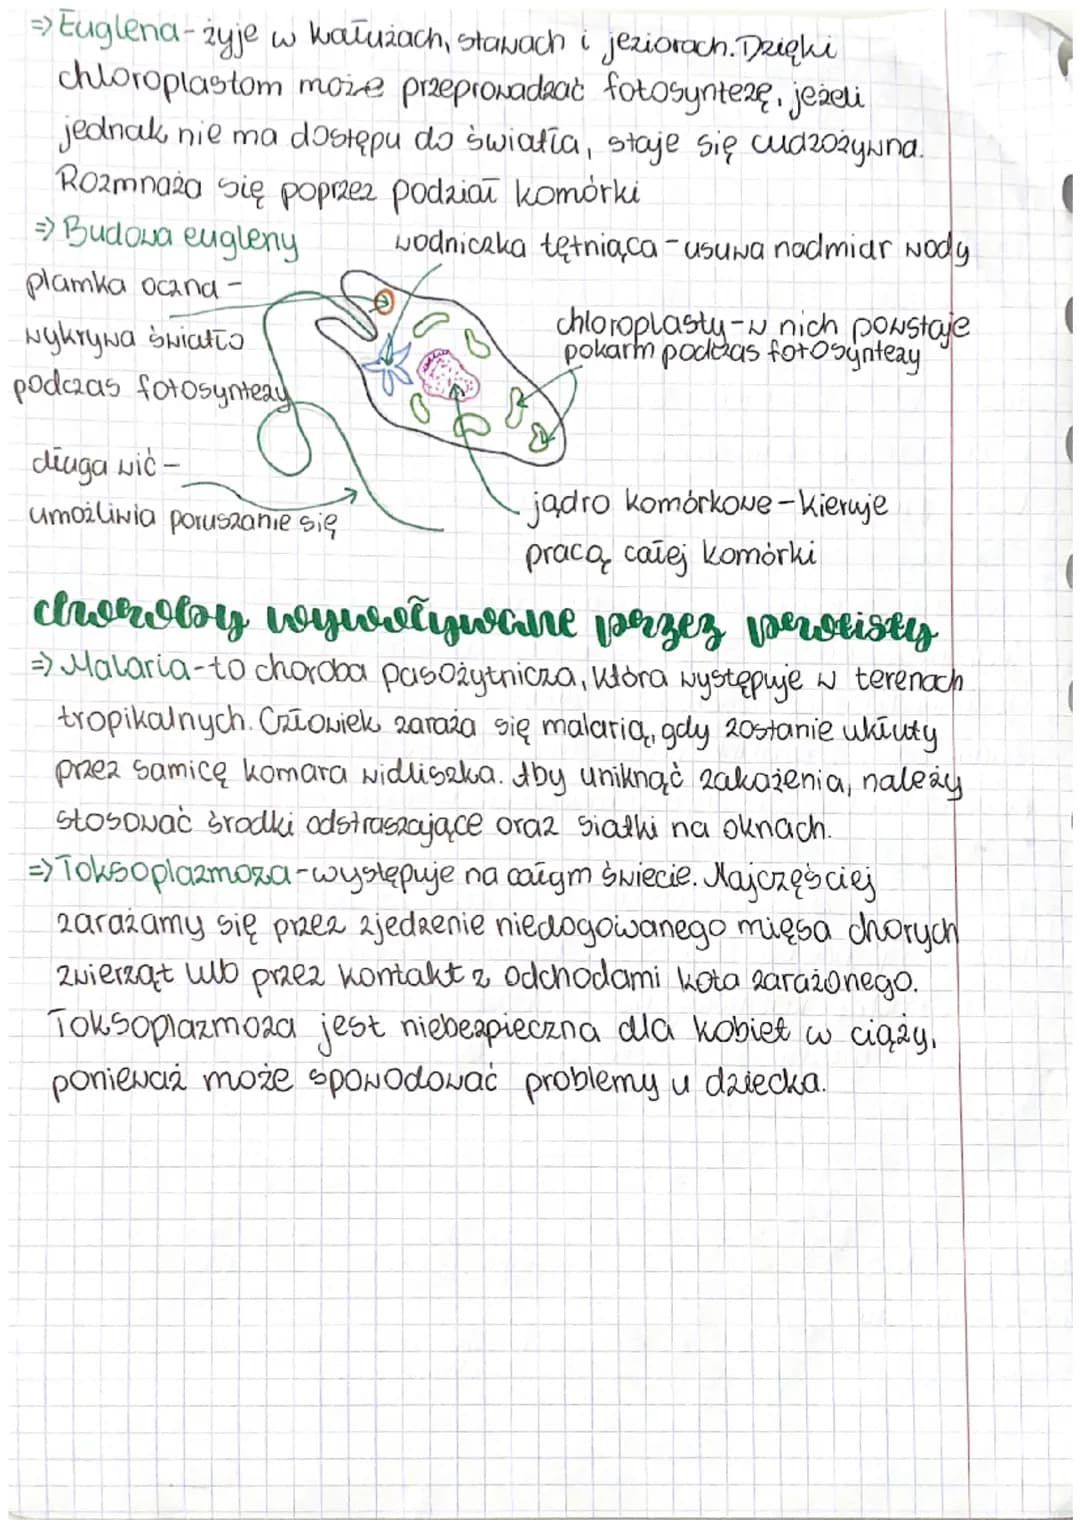 ⇒ Euglena - żyje w kałużach, stawach i jeziorach. Dzięki
chloroplastom może przeprowadzać fotosyntezę, jeżeli
jednak nie ma dostępu do światła, staje się cudzożywna.
Rozmnaża się poprzez podział komórki
⇒ Budowa eugleny
wodniczka tętniąca - usuwa nadmiar wody
plamka oczna -
wykrywa światło
podczas fotosyntezy
chloroplasty - w nich powstaje
pokarm podczas fotosyntezy
długa wić -
umożliwia poruszanie się
jądro komórkowe - kieruje
pracą całej komórki
choroby wywoływane przez protisty
⇒ Malaria - to choroba pasożytnicza, która występuje w terenach
tropikalnych. Człowiek zaraża się malarią, gdy zostanie ukłuty
przez samicę komara widliszka. Aby uniknąć zakażenia, należy
stosować środki odstraszające oraz siatki na oknach.
⇒ Toksoplazmoza - występuje na całym świecie. Najczęściej
zarażamy się przez zjedzenie niedogowanego mięsa chorych
zwierząt lub przez kontakt z odchodami kota zarażonego.
Toksoplazmoza jest niebezpieczna dla kobiet w ciąży,
ponieważ może spowodować problemy u dziecka.